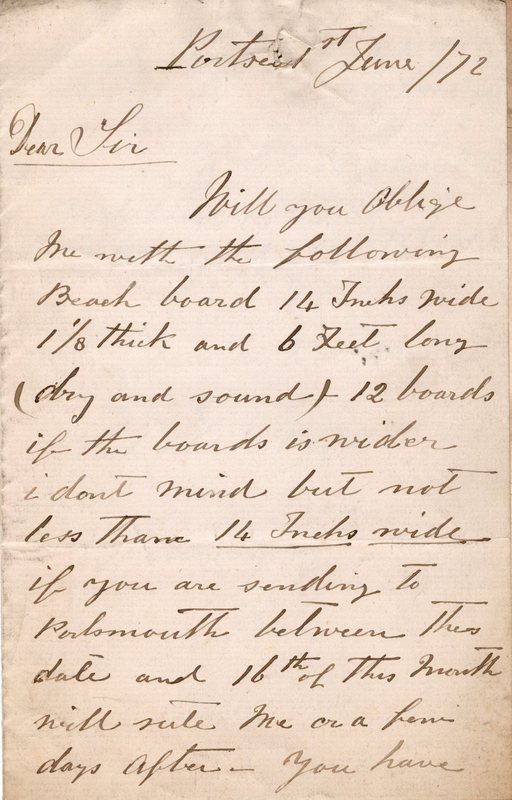 Portsea 1st June /72
Dear Sir
Will you Oblige
Me with the following
Beach board 14 Inchs wide
1 1/8 thick and 6 Feet long
(dry and sound) 12 boards
if the boards is wider
i dont Mind but not
less than 14 Inchs wide
if you are sending to
Portsmouth between this
date and 16th of this Month
will sute Me or a few
days After - You have